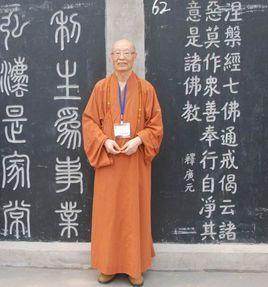 62
涅槃經七佛通戒偈云諸
惡莫作眾善奉行自淨其
意是諸佛教
釋廣元
利生爲事業
弘灋是家常